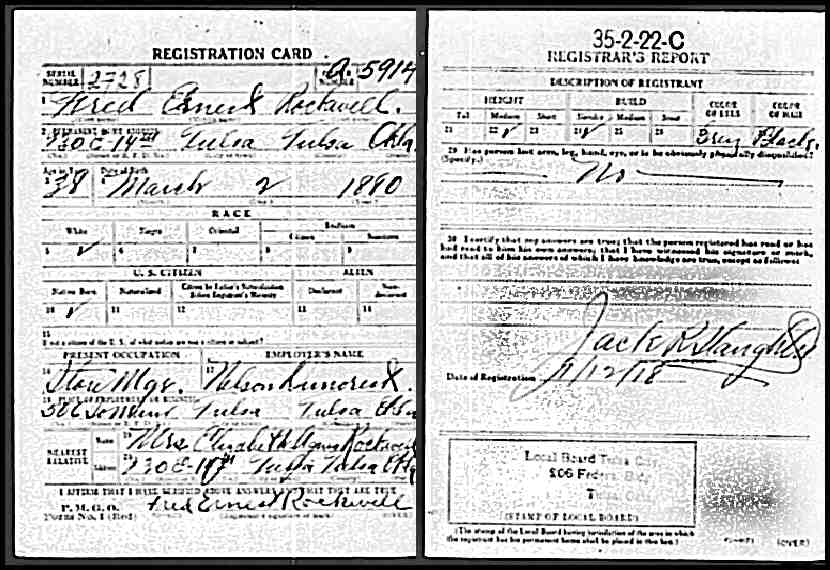 REGISTRATION CARD
SERIAL NUMBER 2728
A 5914
1 Fred Ernest Rockwell.
2 PERMANENT HOME ADDRESS
930 E-14th Tulsa Tulsa Okla
Age in Years Date of Birth
38 March 2 1880
RACE
White Negro Oriental Indian
Citizen Noncitizen
5 ✓ 6 7 8 9
U. S. CITIZEN ALIEN
Native Born Naturalized Citizen by Father's Naturalization Before Registrant's Majority Declarant Non-declarant
10 ✓ 11 12 13 14
15
If not a citizen of the U. S., of what nation are you a citizen or subject?
PRESENT OCCUPATION EMPLOYER'S NAME
16 Store Mgr. 17 Nelson
18 PLACE OF EMPLOYMENT OR BUSINESS
Tulsa Tulsa Okla
NEAREST RELATIVE
Name 19 Mrs Elizabeth Agnes Rockwell
Address 20 930 E-14th Tulsa Tulsa Okla
I AFFIRM THAT I HAVE VERIFIED ABOVE ANSWERS AND THAT THEY ARE TRUE
P. M. G. O.
Form No. 1 (Red) Fred Ernest Rockwell
(Registrant's signature or mark) (OVER)
35-2-22-C
REGISTRAR'S REPORT
DESCRIPTION OF REGISTRANT
HEIGHT BUILD COLOR OF EYES COLOR OF HAIR
Tall Medium Short Slender Medium Stout
21 22 ✓ 23 24 ✓ 25 26 Grey Black.
29 Has person lost arm, leg, hand, eye, or is he obviously physically disqualified?
(Specify.) No
30 I certify that my answers are true; that the person registered has read or has
had read to him his own answers; that I have witnessed his signature or mark,
and that all of his answers of which I have knowledge are true, except as follows:
Jack R. Slaughter
Date of Registration 9/12/18
Local Board Tulsa City
206 Federal Bldg
Tulsa, Okla.
(STAMP OF LOCAL BOARD)
(The stamp of the Local Board having jurisdiction of the area in which
the registrant has his permanent home shall be placed in this box.)
(OVER)